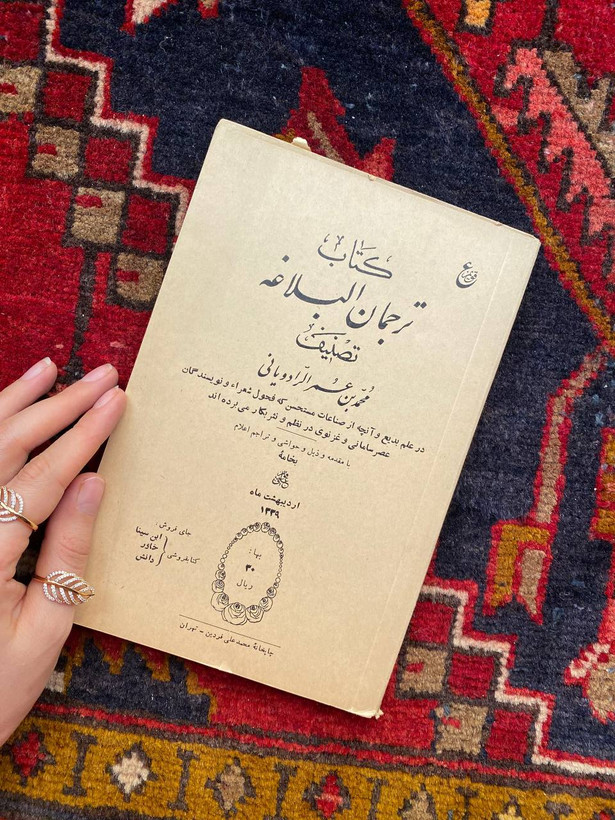 کتاب
ترجمان البلاغه
تصنیف
محمد بن عمر الرادویانی
در علم بدیع و آنچه از صناعات مستحسن که فحول شعراء و نویسندگان
عصر سامانی و غزنوی در نظم و نثر بکار می برده اند
با مقدمه و ذیل و حواشی و تراجم اعلام
بخامهٔ
اردیبهشت ماه
۱۳۳۹
جای فروش:
کتابفروشی
ابن سینا
خاور
دانش
بها:
۳۰
ریال
چاپخانهٔ محمد علی فردین - تهران